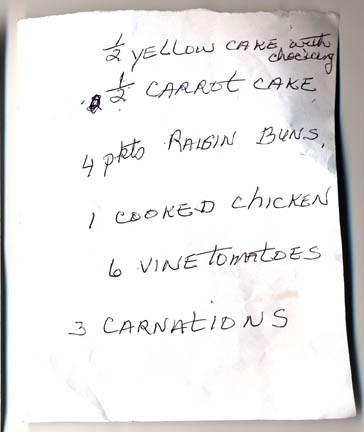 ½ YELLOW CAKE, with
chocicing
½ CARROT CAKE
4 pkts RAISIN BUNS,
1 COOKED CHICKEN
6 VINE TOMATOES
3 CARNATIONS